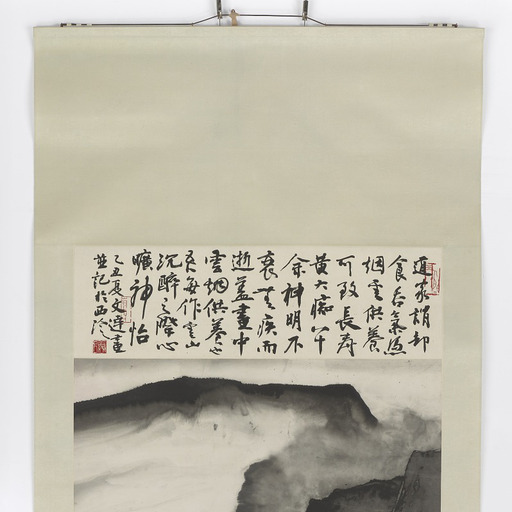 道家謂却
食吞氣為
烟雲供養
可致長壽
黄大癡八十
余神明不
衰無疾而
逝蓋畫中
雲烟供養也
吾每作雲山
沉醉之際心
曠神怡
乙丑夏文達畫
並記於西泠